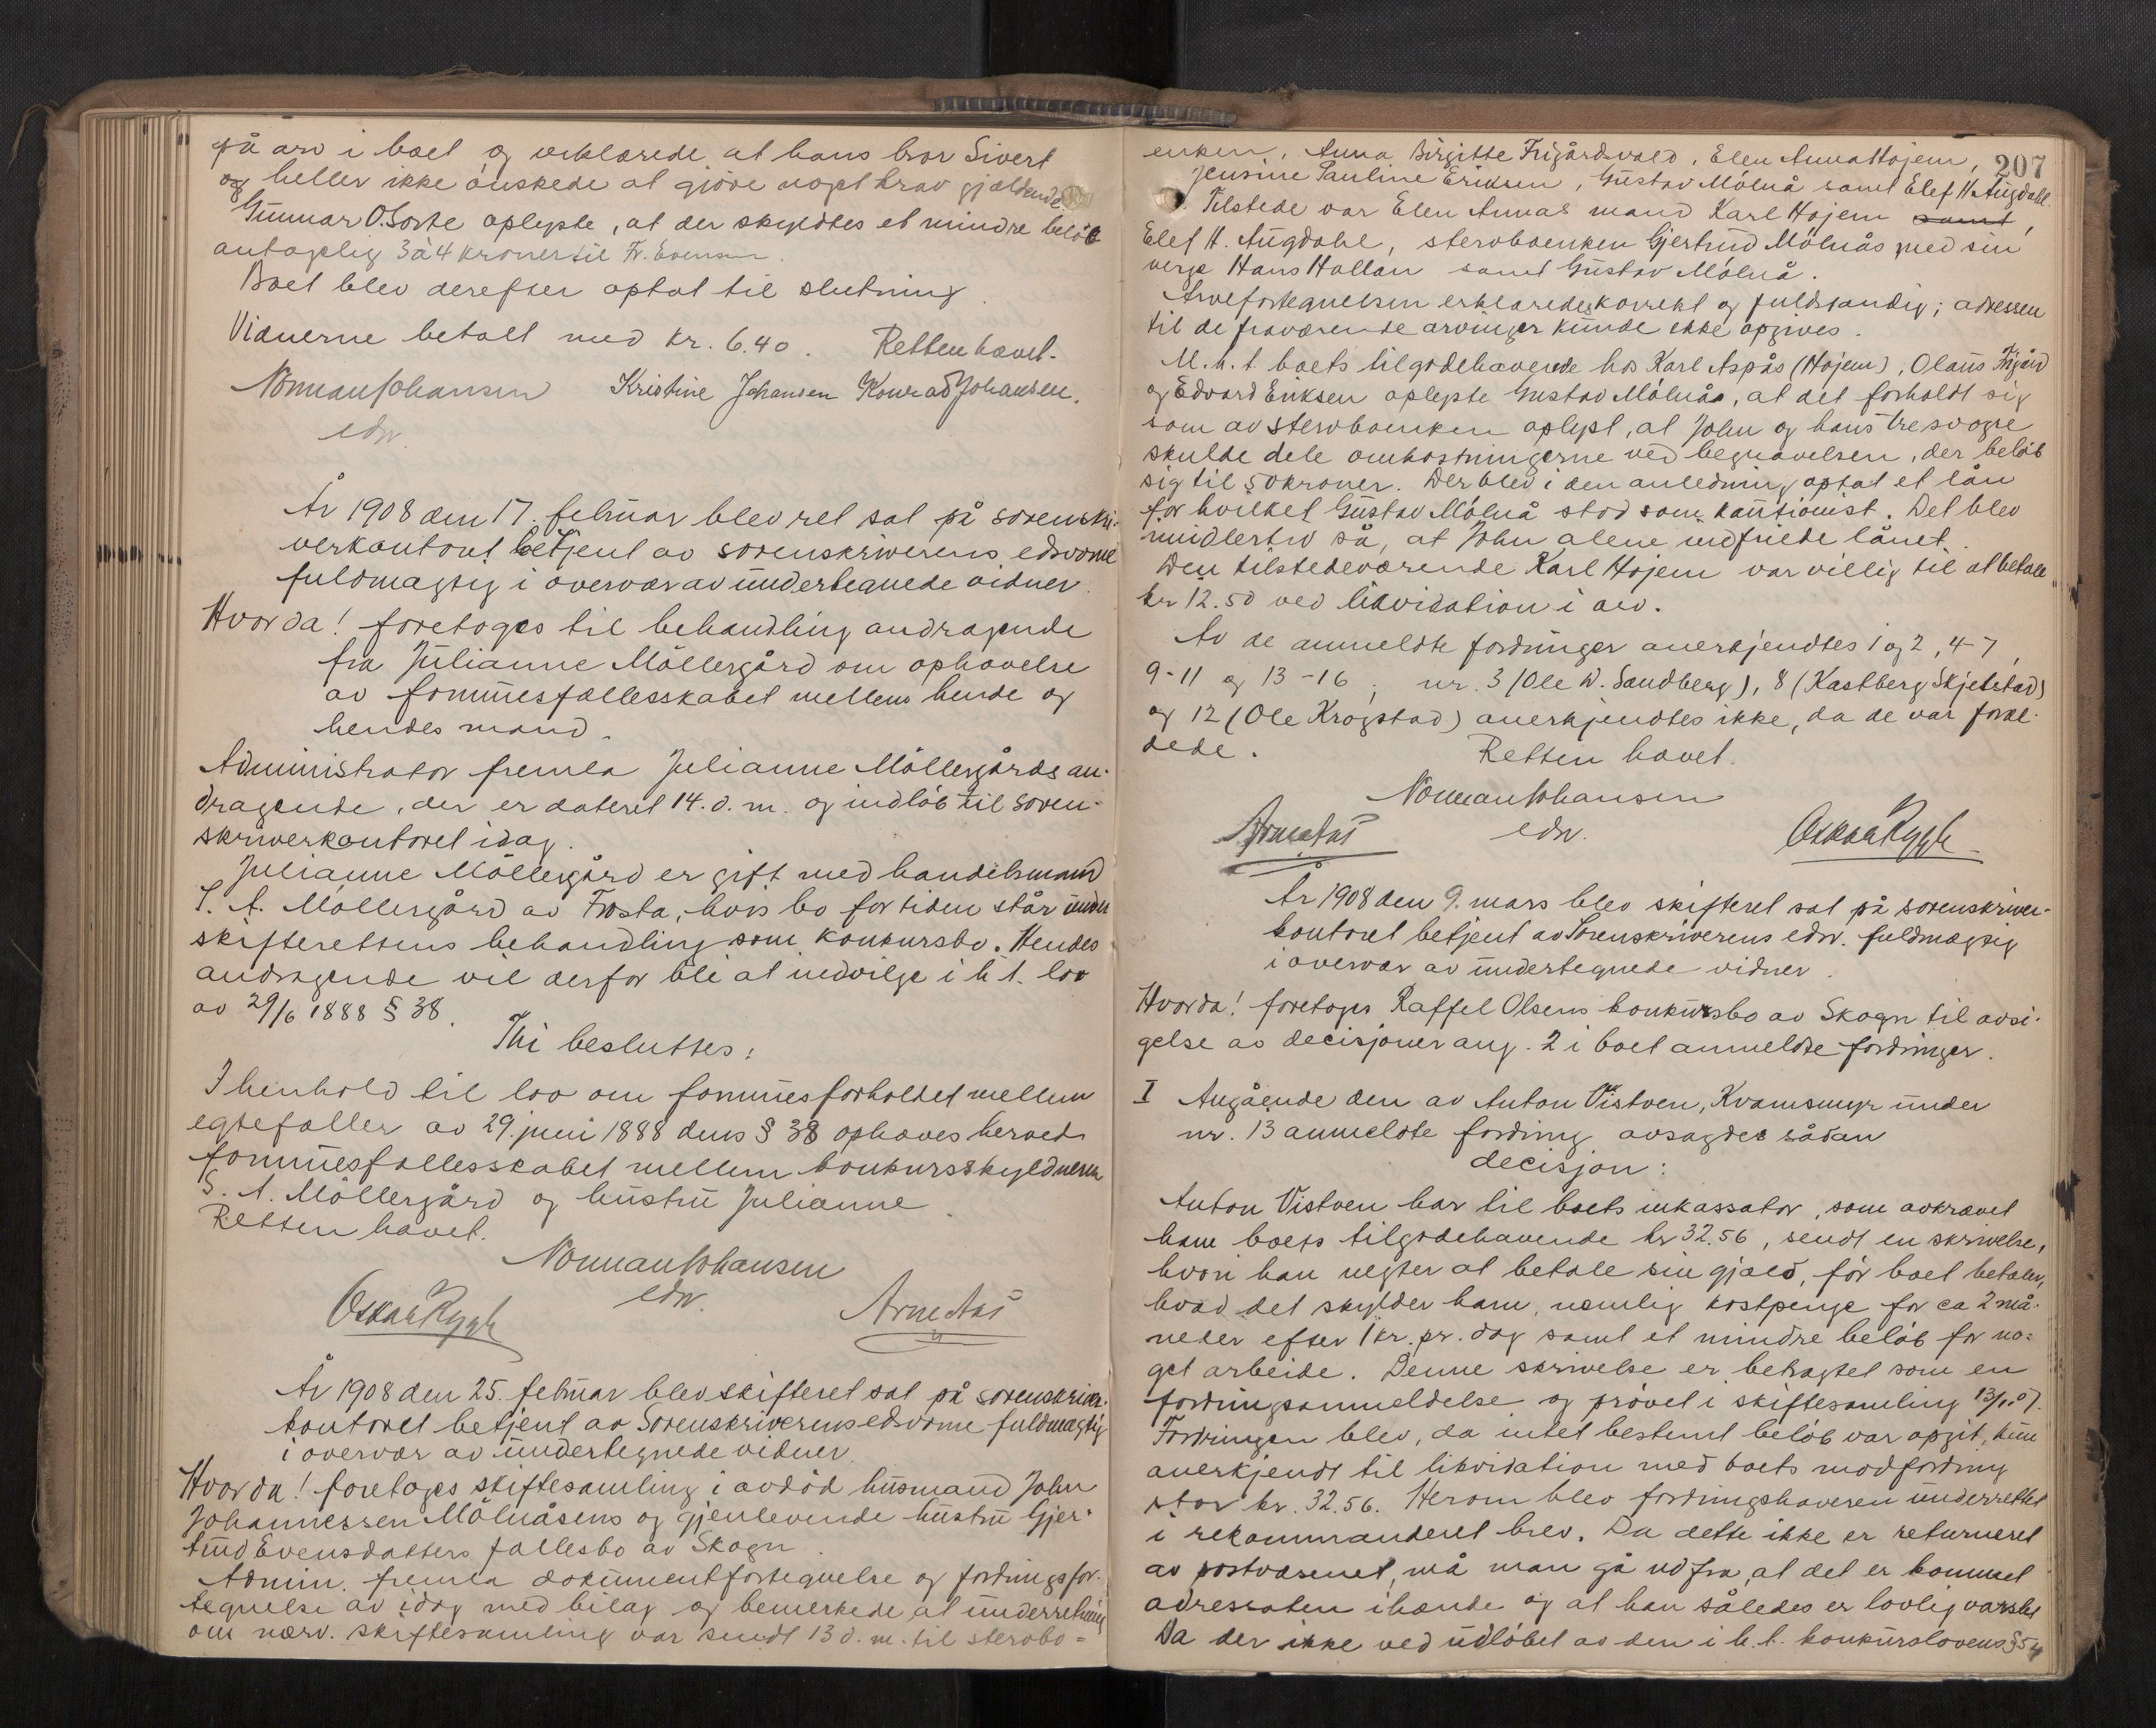 på arv i boet og erklærede at hans bror Sivert
og heller ikke ønskede at gjöre noget krav gjældende
Gunnar O. Sorte oplyste, at der skyldtes et mindre belöb
antagelig 3 à 4 kroner til Fr. Evensen.
Boet blev derefter optat til slutning.
Vidnerne betalt med kr. 6.40. Retten hævet.
Norman Johansen Kristine Johansen Konrad Johansen.
edsv.
År 1908 den 17. februar blev ret sat på sorenskri-
verkontoret betjent av sorenskriverens edsvorne
fuldmægtig i overvær av undertegnede vidner.
Hvorda! foretoges til behandling andragende
fra Julianne Möllergård om ophævelse
av formuesfællesskabet mellem hende og
hendes mand.
Administrator fremla Julianne Möllergårds an-
dragende, der er dateret 14. d. m. og indlöb til soren-
skriverkontoret idag.
Julianne Möllergård er gift med handelsmand
S. A. Möllergård av Frosta, hvis bo for tiden står under
skifterettens behandling som konkursbo. Hendes
andragende vil derfor bli at indvilge i h. t. lov
av 29/6 1888 § 38.
Thi besluttes:
I henhold til lov om formuesforholdet mellem
egtefæller av 29. juni 1888 dens § 38 ophæves herved
formuesfællesskabet mellem konkursskyldneren
S. A. Möllergård og hustru Julianne.
Retten hævet.
Norman Johansen
edsv.
Oskar Rygh Arne Aas
År 1908 den 25. februar blev skifteret sat på sorenskriver-
kontoret betjent av Sorenskriverens edsvorne fuldmægtig
i overvær av undertegnede vidner.
Hvorda! foretoges skiftesamling i avdöd husmand John
Johannessen Mölnåsens og gjenlevende hustru Gjer-
trud Evensdatters fællesbo av Skogn.
Admin. fremla dokumentfortegnelse og fordringsfor-
tegnelse av idag med bilag og bemerkede at underretning
om nærv. skiftesamling var sendt 13 d. m. til stervbo-
207
enken, Anna Birgitte Frigårdsvald, Elen Anna Højem,
Jensine Pauline Eriksen, Gustav Mölnå samt Elef H. Augdahl.
Tilstede var Elen Annas mand Karl Højem samt,
Elef H. Augdahl, stervboenken Gjertrud Mölnås med sin
verge Hans Hallan samt Gustav Mölnå.
Arvefortegnelsen erklæredes korrekt og fuldstændig; adressen
til de fraværende arvinger kunde ikke opgives.
M. h. t. boets tilgodehavende hos Karl Aspås (Højem), Olaus Frigård
og Edvard Eriksen oplyste Gustav Mölnås, at det forholdt sig
som av stervboenken oplyst, at John og hans tre svogre
skulde dele omkostningerne ved begravelsen, der belöb
sig til 50 kroner. Der blev i den anledning optat et lån
for hvilket Gustav Mölnå stod som kautionist. Det blev
imidlertid så, at John alene indfriede lånet.
Den tilstedeværende Karl Højem var villig til at betale
kr 12.50 ved likvidation i arv.
Av de anmeldte fordringer anerkjendtes 1 og 2, 4-7,
9-11 og 13-16; nr. 3 (Ole W. Sandberg), 8 (Kastberg Skjelstad)
og 12 (Ole Krogstad) anerkjendtes ikke, da de var foræl-
dede. Retten hævet.
Norman Johansen
Arne Aas edsv. Oskar Rygh
År 1908 den 9. mars blev skifteret sat på sorenskriver-
kontoret betjent av Sorenskriverens edsv. fuldmægtig
i overvær av undertegnede vidner.
Hvorda! foretoges Raffel Olsens konkursbo av Skogn til avsi-
gelse av decisjoner ang. 2 i boet anmeldte fordringer.
I Angående den av Anton Vistven, Kvamsmyr under
nr. 13 anmeldte fordring avsagdes sådan
decisjon:
Anton Vistven har til boets inkassator, som avkrævet
ham boets tilgodehavende kr 32.56, sendt en skrivelse,
hvori han negter at betale sin gjæld, för boet betaler,
hvad det skylder ham, nemlig kostpenge for ca 2 må-
neder efter 1 kr. pr. dag samt et mindre belöb for no-
get arbeide. Denne skrivelse er betragtet som en
fordringsanmeldelse og prövet i skiftesamling 13/1.07.
Fordringen blev, da intet bestemt belöb var opgit, kun
anerkjendt til likvidation med boets modfordring
stor kr. 32.56. Herom blev fordringshaveren underrettet
i rekommanderet brev. Da dette ikke er returneret
av postvæsenet, må man gå ud fra, at det er kommet
adressaten ihænde og at han således er lovlig varslet
Da der ikke ved udlöbet av den i h. t. konkurslovens § 54